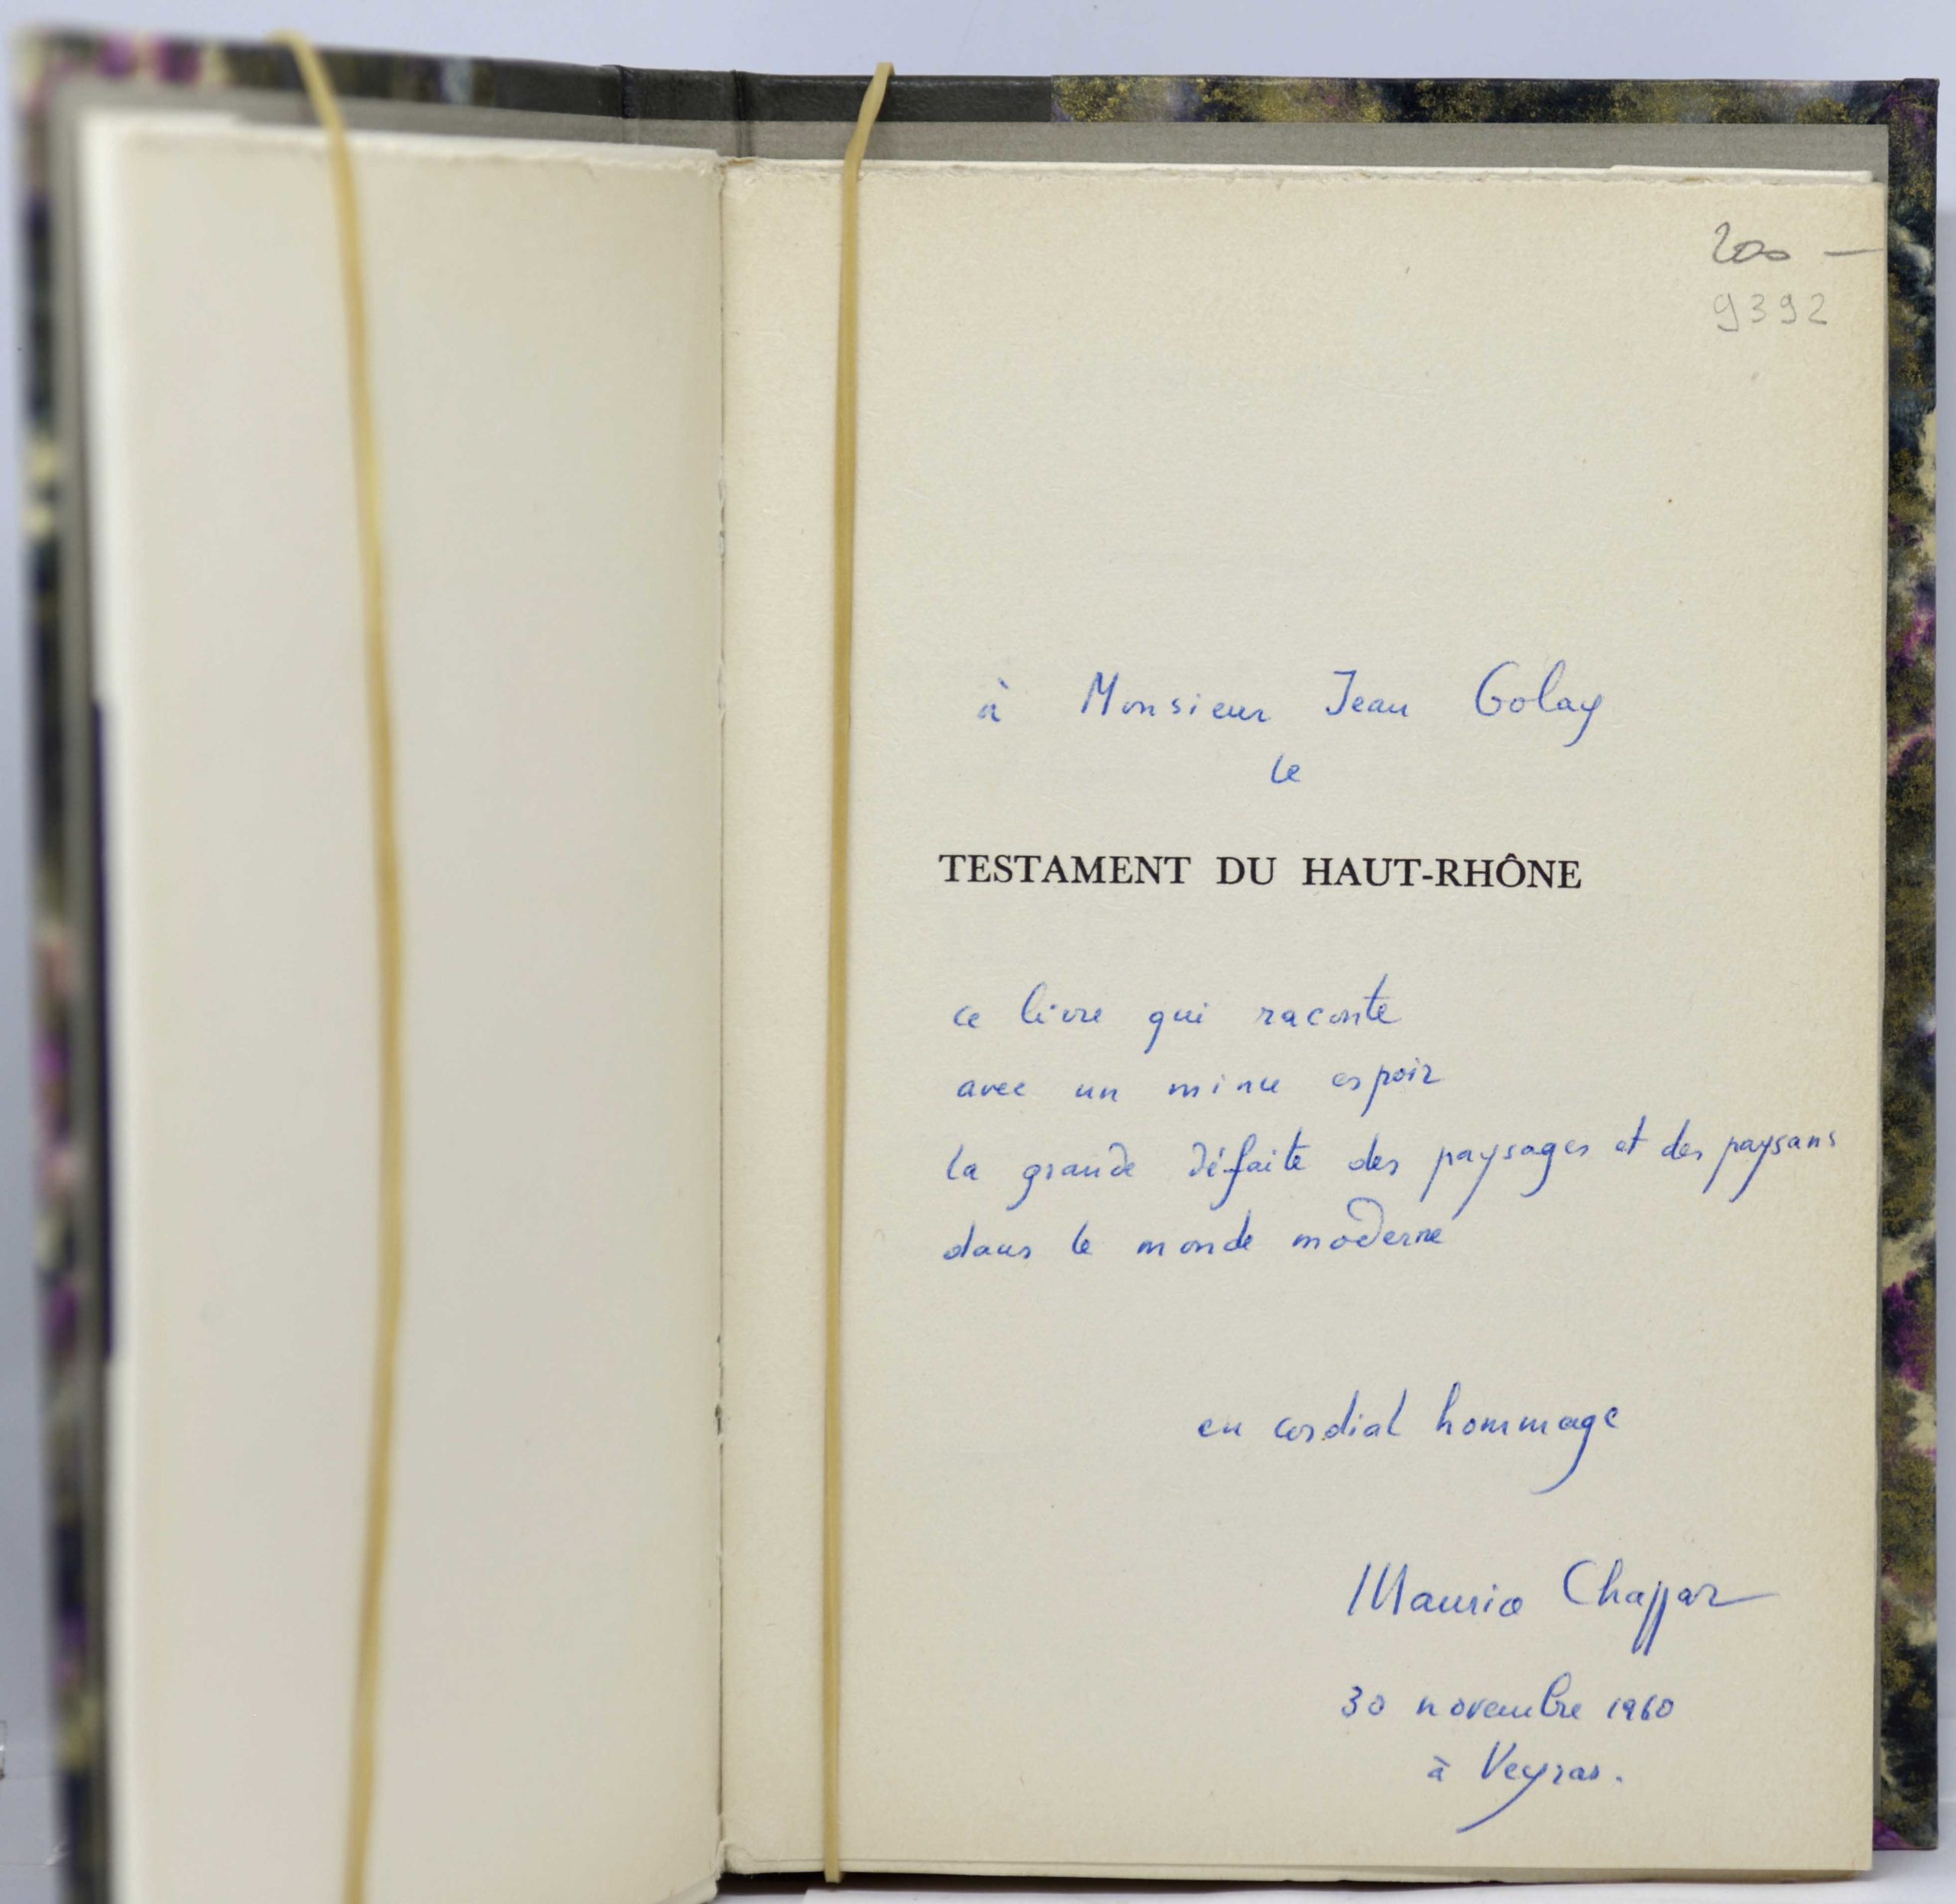 200 —
9392
à Monsieur Jean Golay
le
TESTAMENT DU HAUT-RHÔNE
ce livre qui raconte
avec un mince espoir
la grande défaite des paysages et des paysans
dans le monde moderne
en cordial hommage
Maurice Chappaz
30 novembre 1960
à Veyras.